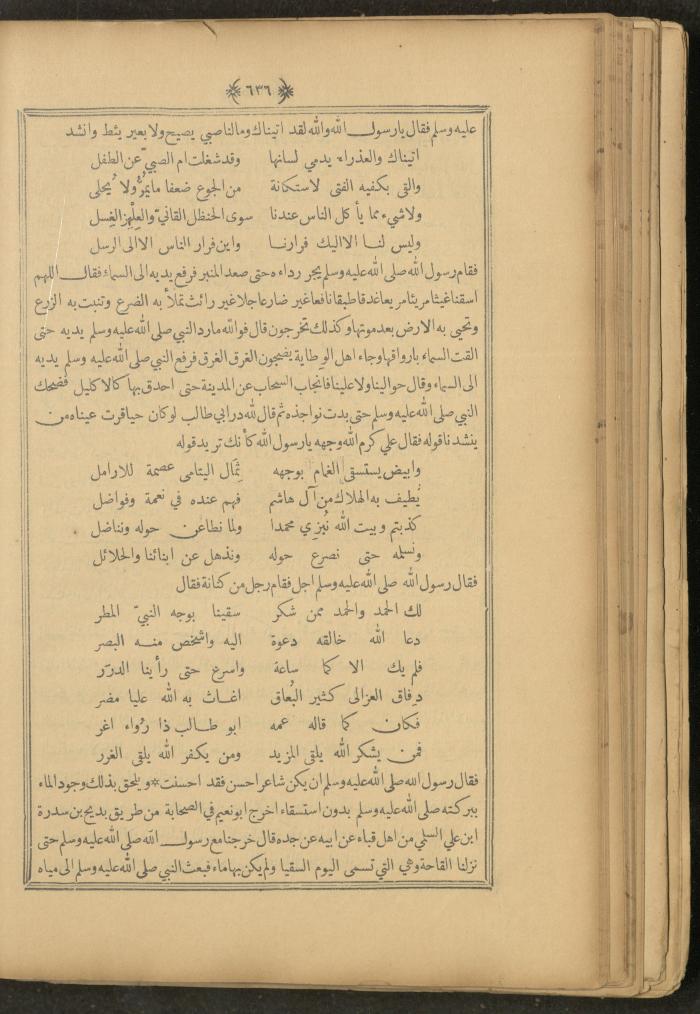 ﴿ ٦٣٦ ﴾
عليه وسلم فقال يا رسول الله والله لقد اتيناك ومالنا صبي يصيح ولا بعير يئط وانشد
اتيناك والعذراء يدمي لسانها وقد شغلت ام الصبيّ عن الطفل
والقى بكفيه الفتى لاستكانة من الجوع ضعفا ما يمرّ ولا يُحلى
ولا شيء مما يأكل الناس عندنا سوى الحنظل القانيّ والعِلْهِز الغِسل
وليس لنا الا اليك فرارنا واين فرار الناس الا الى الرسل
فقام رسول الله صلى الله عليه وسلم يجر رداءه حتى صعد المنبر فرفع يديه الى السماء فقال اللهم
اسقنا غيثا مريثا مريعا غدقا طبقا نافعا غير ضار عاجلا غير رائث تملأ به الضرع وتنبت به الزرع
وتحيى به الارض بعد موتها وكذلك تخرجون قال فوالله مارد النبي صلى الله عليه وسلم يديه حتى
القت السماء بارواقها وجاء اهل الوطاية يضجون الغرق الغرق فرفع النبي صلى الله عليه وسلم يديه
الى السماء وقال حوالينا ولا علينا فانجاب السحاب عن المدينة حتى احدق بها كالاكليل فضحك
النبي صلى الله عليه وسلم حتى بدت نواجذه ثم قال لله در ابي طالب لو كان حيا قرت عيناه من
ينشدنا قوله فقال علي كرم الله وجهه يا رسول الله كأنك تريد قوله
وابيض يستسقى الغمام بوجهه ثِمال اليتامى عصمة للارامل
يُطيف به الهلاك من آل هاشم فهم عنده في نعمة وفواضل
كذبتم وبيت الله نُبزي محمدا ولما نطاعن حوله ونناضل
ونسلمه حتى نصرع حوله ونذهل عن ابنائنا والحلائل
فقال رسول الله صلى الله عليه وسلم اجل فقام رجل من كنانة فقال
لك الحمد والحمد ممن شكر سقينا بوجه النبيّ المطر
دعا الله خالقه دعوة اليه واشخص منه البصر
فلم يك الا كما ساعة واسرع حتى رأينا الدرر
دِفاق العزالى كثير البُعاق اغاث به الله عليا مضر
فكان كما قاله عمه ابو طالب ذا رُواء اغر
فمن يشكر الله يلقى المزيد ومن يكفر الله يلقى الغرر
فقال رسول الله صلى الله عليه وسلم ان يكن شاعر احسن فقد احسنت * ويلحق بذلك وجود الماء
ببركته صلى الله عليه وسلم بدون استسقاء اخرج ابونعيم في الصحابة من طريق بديح بن سدرة
ابن علي السلمي من اهل قباء عن ابيه عن جده قال خرجنا مع رسول الله صلى الله عليه وسلم حتى
نزلنا القاحة وهي التي تسمى اليوم السقيا ولم يكن بها ماء فبعث النبي صلى الله عليه وسلم الى مياه